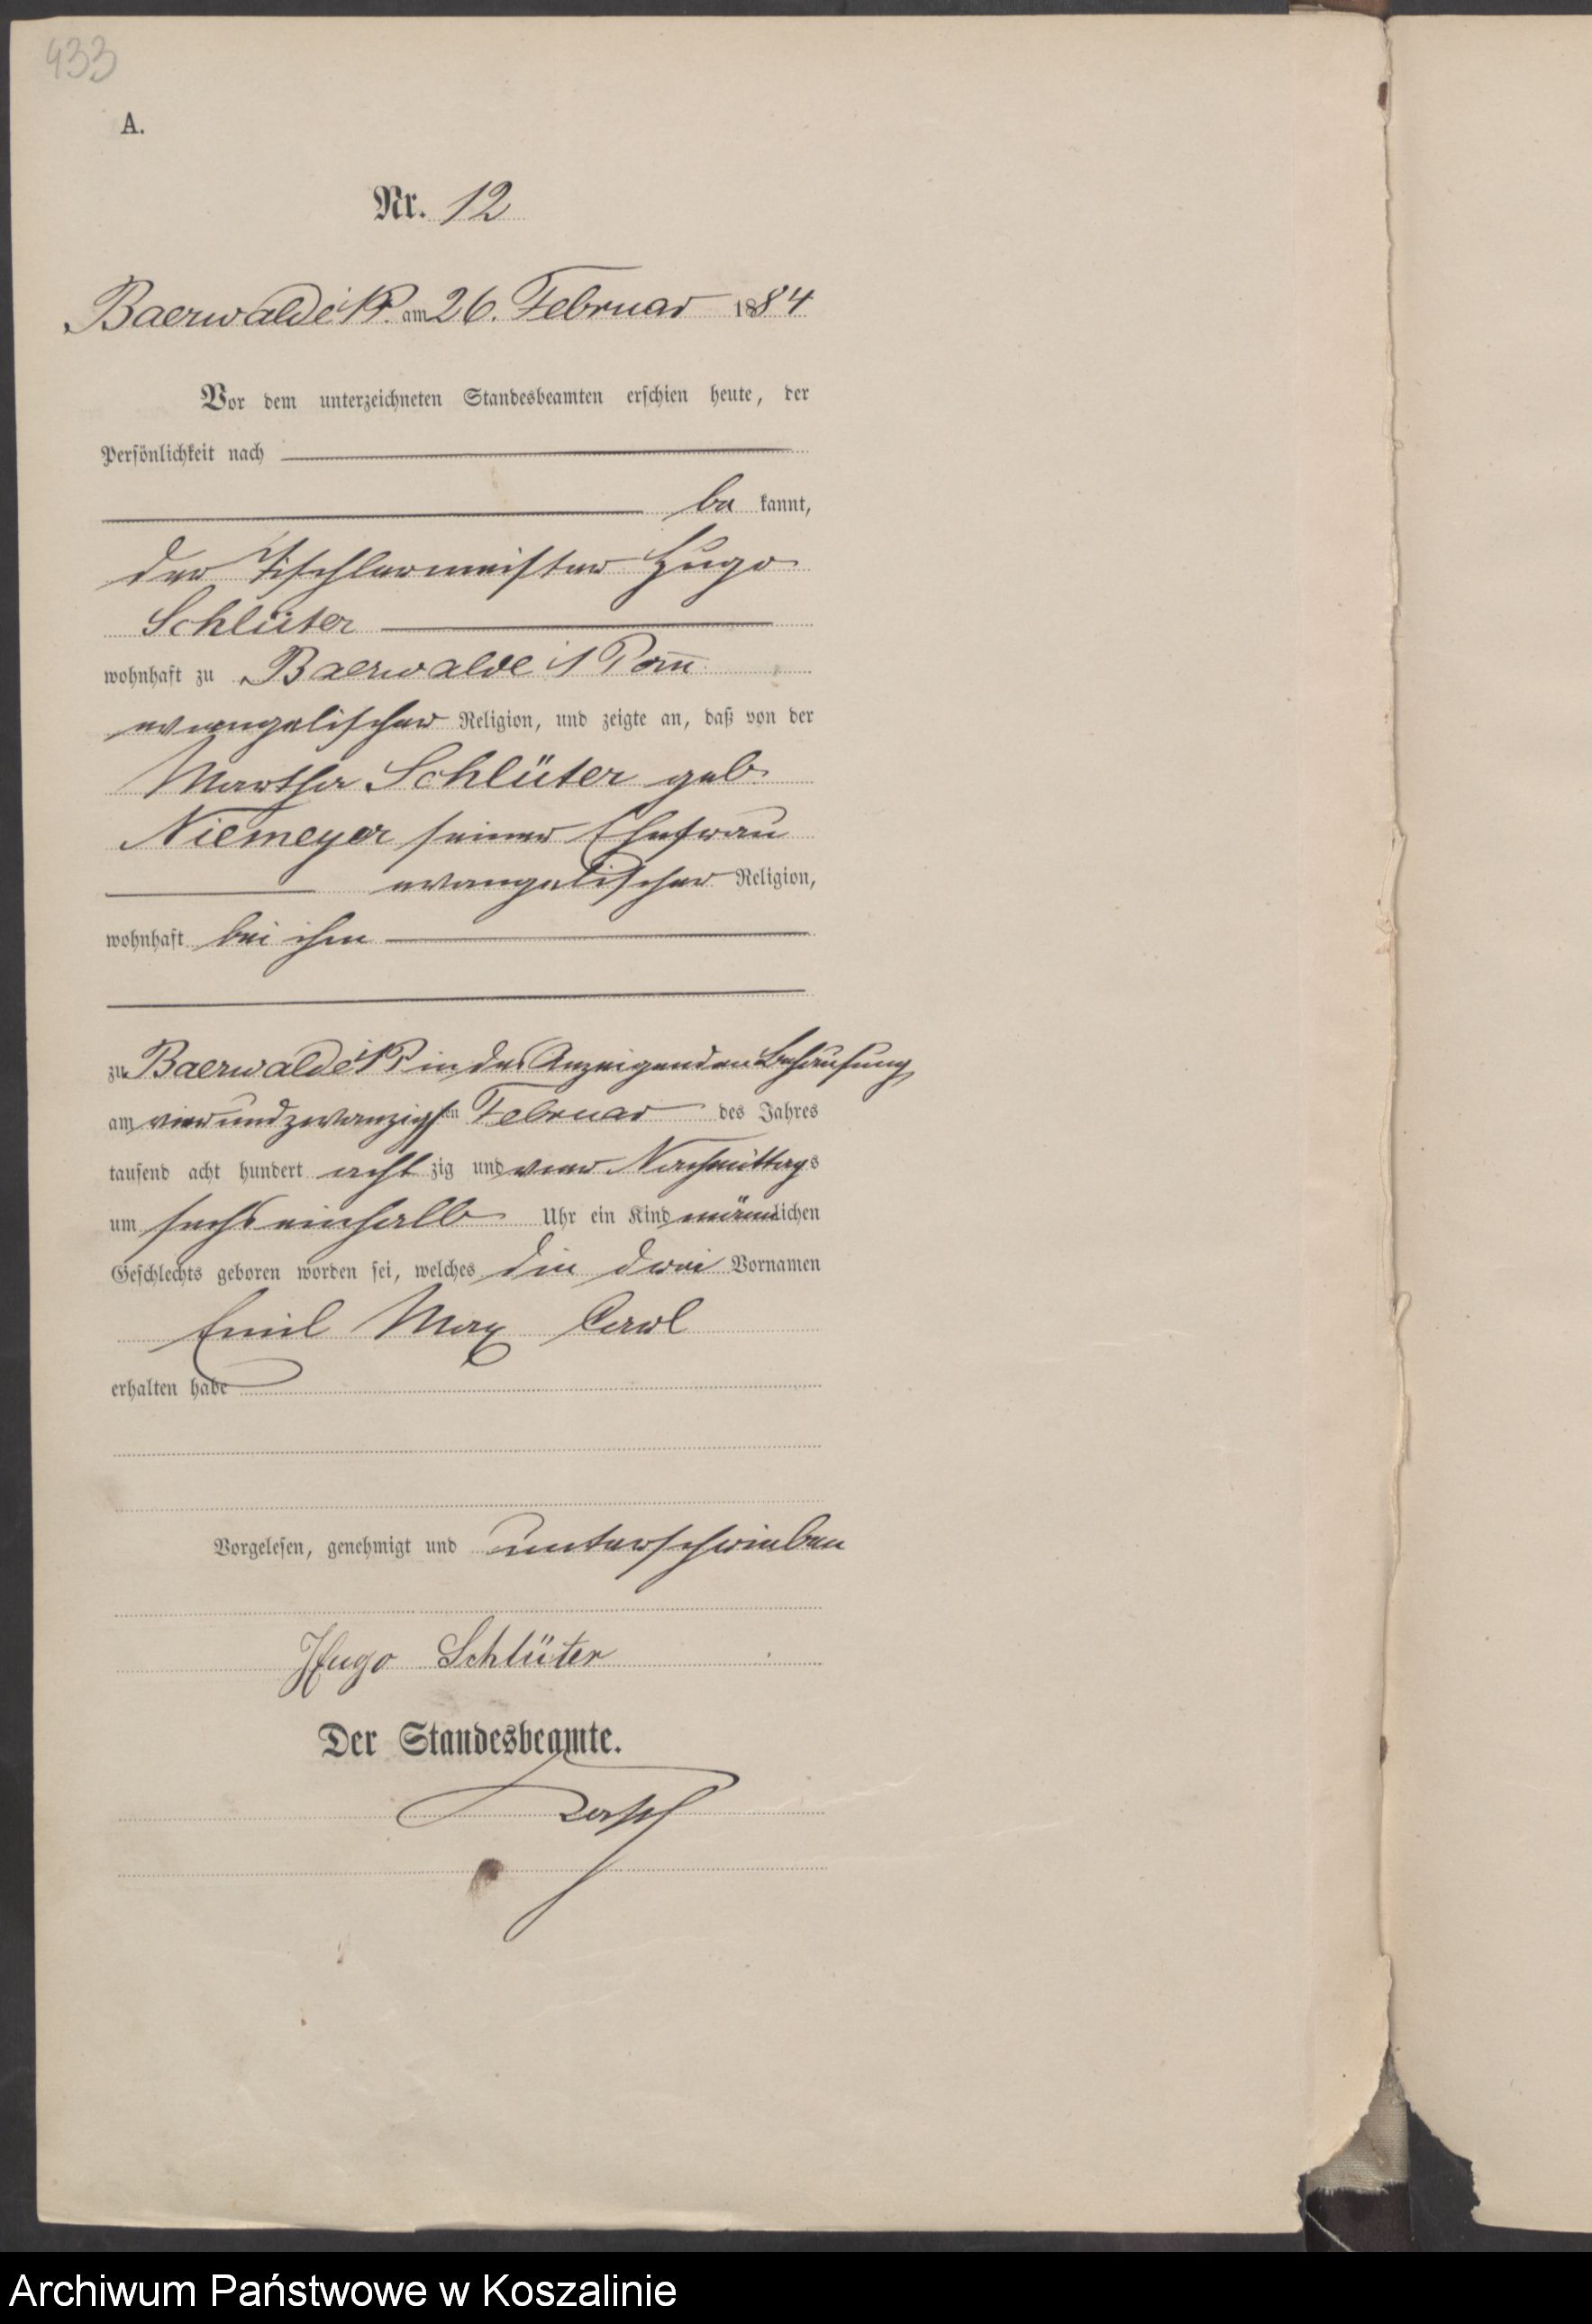 433
A.
Nr. 12
Baerwalde i/P. am 26. Februar 1884
Vor dem unterzeichneten Standesbeamten erschien heute, der
Persönlichkeit nach
be kannt,
der Tischlermeister Hugo
Schlüter
wohnhaft zu Baerwalde i/Pom̄
evangelischer Religion, und zeigte an, daß von der
Martha Schlüter geb.
Niemeyer seiner Ehefrau
evangelischer Religion,
wohnhaft bei ihm
zu Baerwalde i/P in des Anzeigenden Behausung
am vierundzwanzigsten Februar des Jahres
tausend acht hundert acht zig und vier Nachmittags
um sechseinhalb Uhr ein Kind männlichen
Geschlechts geboren worden sei, welches die drei Vornamen
Emil Max Carl
erhalten habe
Vorgelesen, genehmigt und unterschrieben
Hugo Schlüter
Der Standesbeamte.
Archiwum Państwowe w Koszalinie